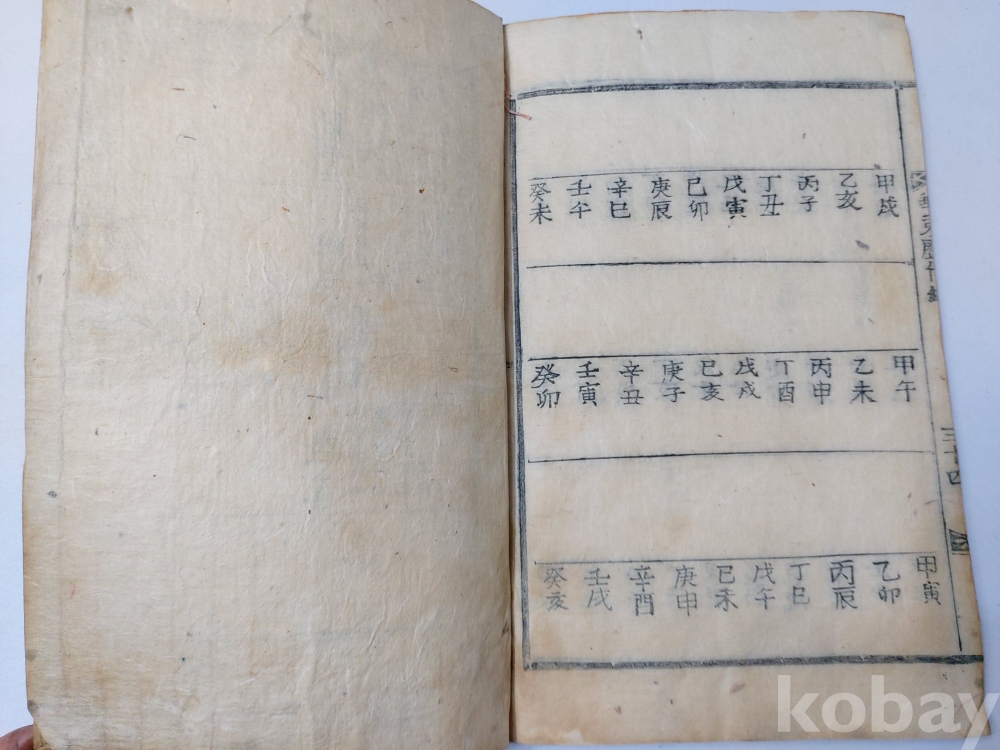 三十四
甲戌 乙亥 丙子 丁丑 戊寅 己卯 庚辰 辛巳 壬午 癸未
甲午 乙未 丙申 丁酉 戊戌 己亥 庚子 辛丑 壬寅 癸卯
甲寅 乙卯 丙辰 丁巳 戊午 己未 庚申 辛酉 壬戌 癸亥
kobay